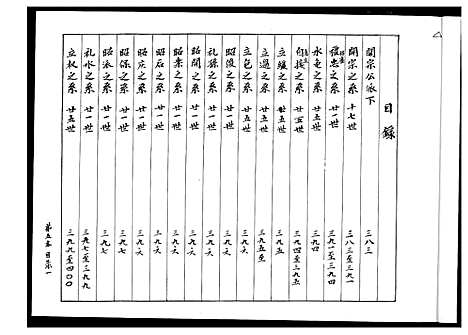 目錄
開宗公派下 三八三
開宗之系 十七世 三八三至三九一
之系 廿一世 三九一至三九四
永屯之系 廿五世 三九四
之系 廿五世 三九四至三九五
立緩之系 廿五世 三九五
立通之系 廿五世 三九五至
立色之系 廿五世 三九六
昭後之系 廿一世 三九六
礼孫之系 廿一世 三九六
昭開之系 廿一世 三九六
昭素之系 廿一世 三九六
昭石之系 廿一世 三九六
昭左之系 廿一世 三九六
昭保之系 廿一世 三九七
昭添之系 廿一世 三九七
礼水之系 廿一世 三九七至三九九
立权之系 廿五世 三九九至四〇〇
第五本 目錄一